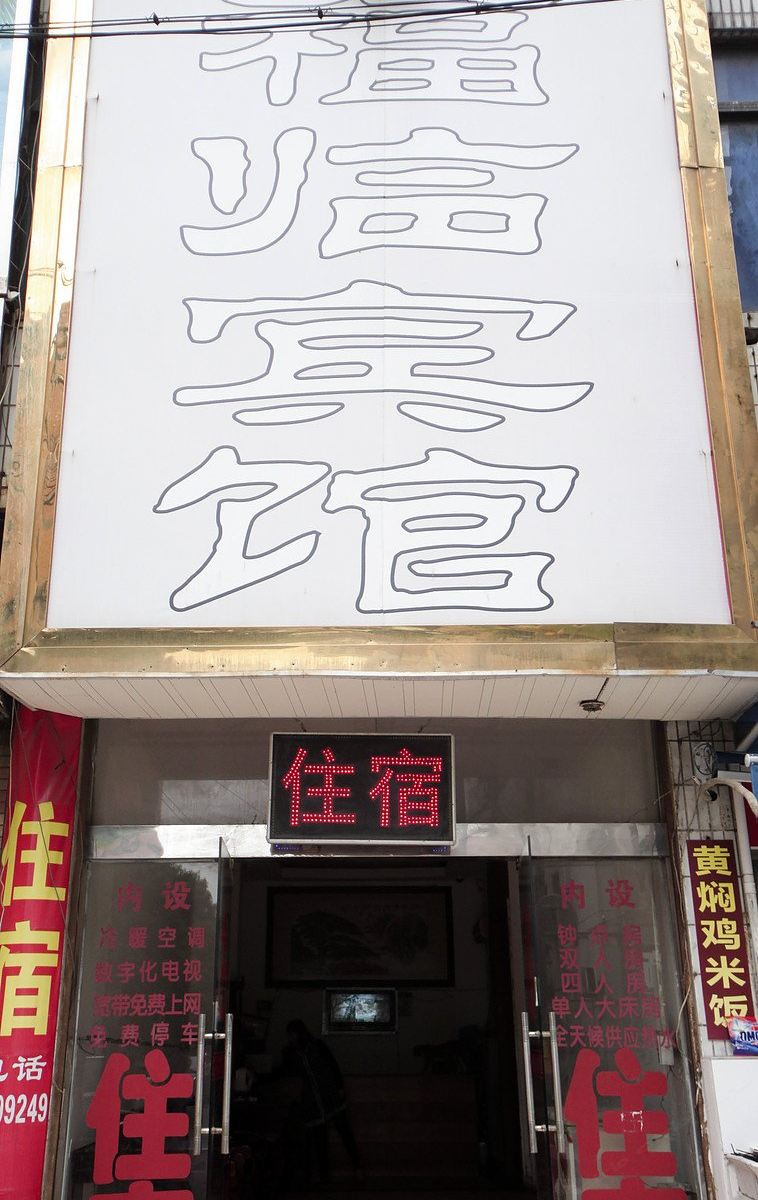 福
临
宾
馆
住宿
住宿
电话
09249
内设
冷暖空调
数字化电视
宽带免费上网
免费停车
住
内设
钟点房
双人房
四人房
单人大床房
全天候供应热水
住
黄焖鸡米饭